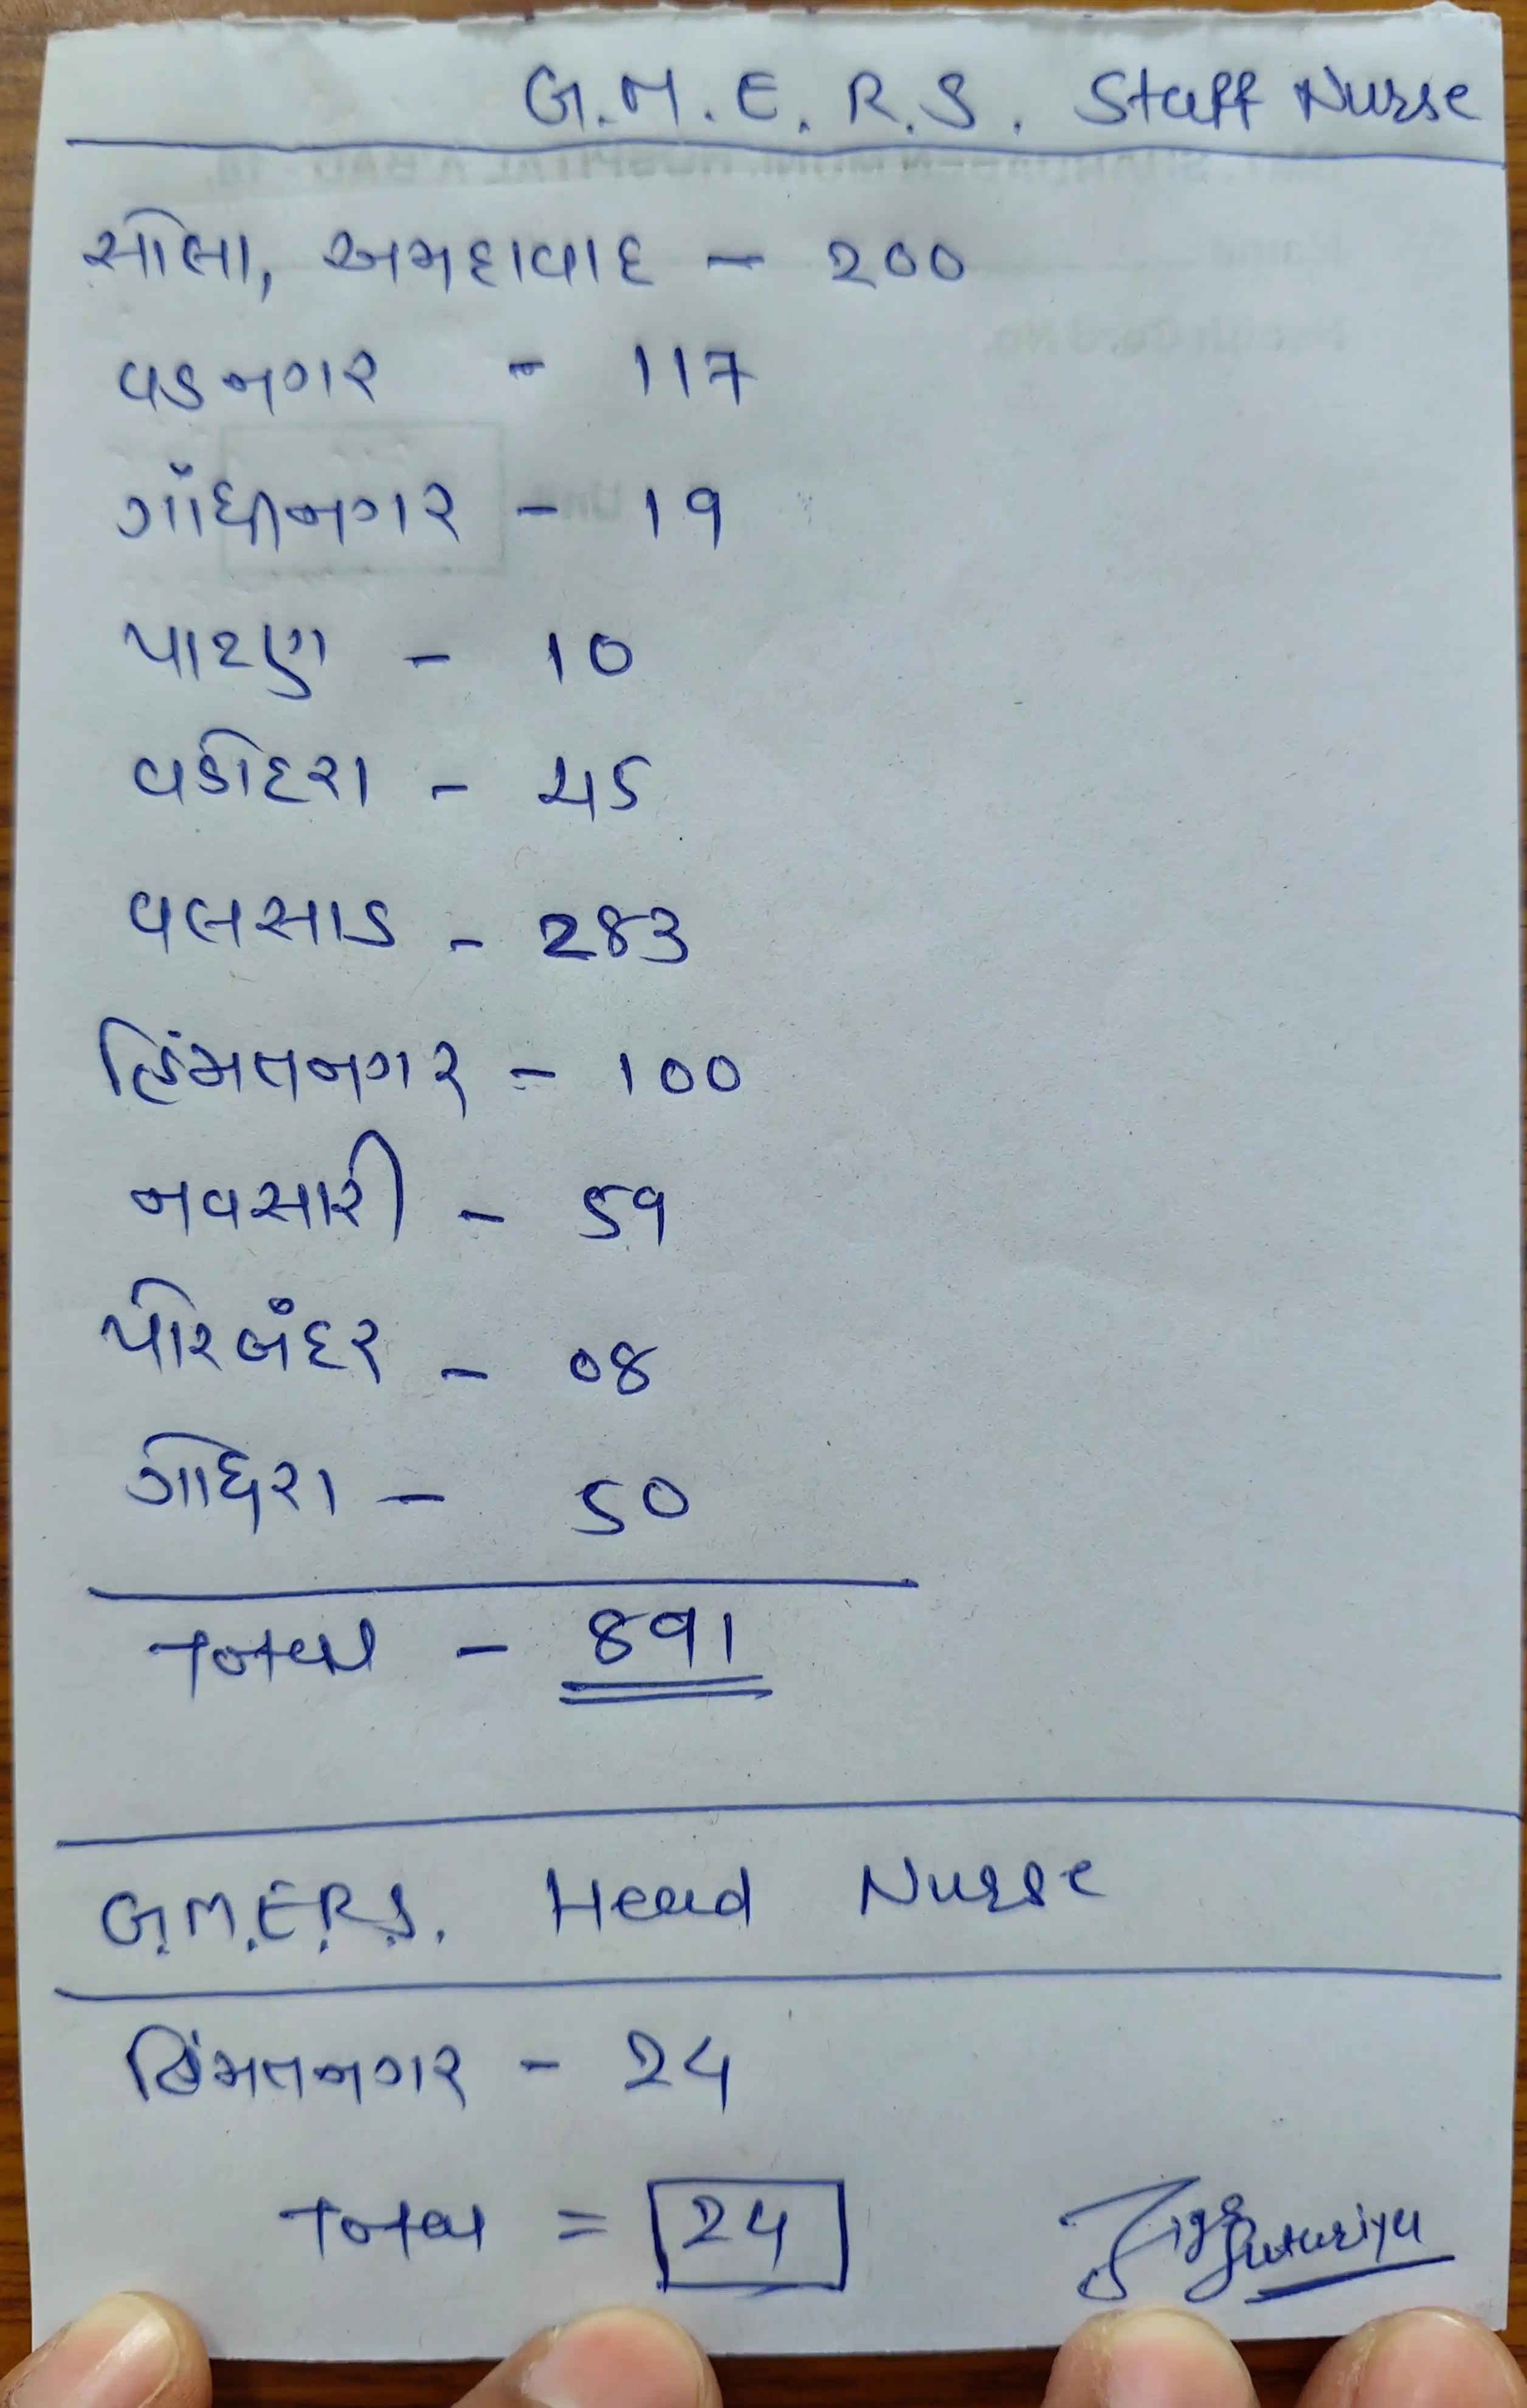 G.M.E.R.S. Staff Nurse
સોલા, અમદાવાદ - 200
વડનગર - 117
ગાંધીનગર - 19
પાટણ - 10
વડોદરા - 45
વલસાડ - 283
હિંમતનગર - 100
નવસારી - 59
પોરબંદર - 08
ગોધરા - 50
Total - 891
G.M.E.R.S. Head Nurse
હિંમતનગર - 24
Total = 24